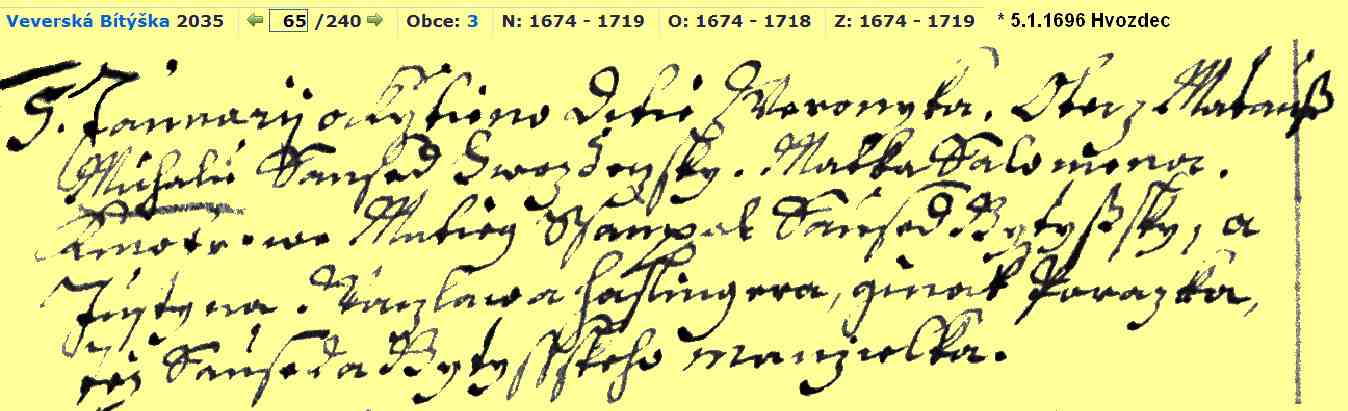 Veverská Bítýška 2035 65 /240 Obce: 3 N: 1674 - 1719 O: 1674 - 1718 Z: 1674 - 1719 * 5.1.1696 Hvozdec
5. Januarij okrztieno ditie Veronyka. Otecz Matauß
Michalů Saused Hwozdeczsky. Matka Salomena.
Kmotrowe Matieg Sstampak Saused Bytyßsky, a
Justyna. Vaczlawa Haslingera, ginak Porazka,
též Sauseda Bytyssskeho manzielka.